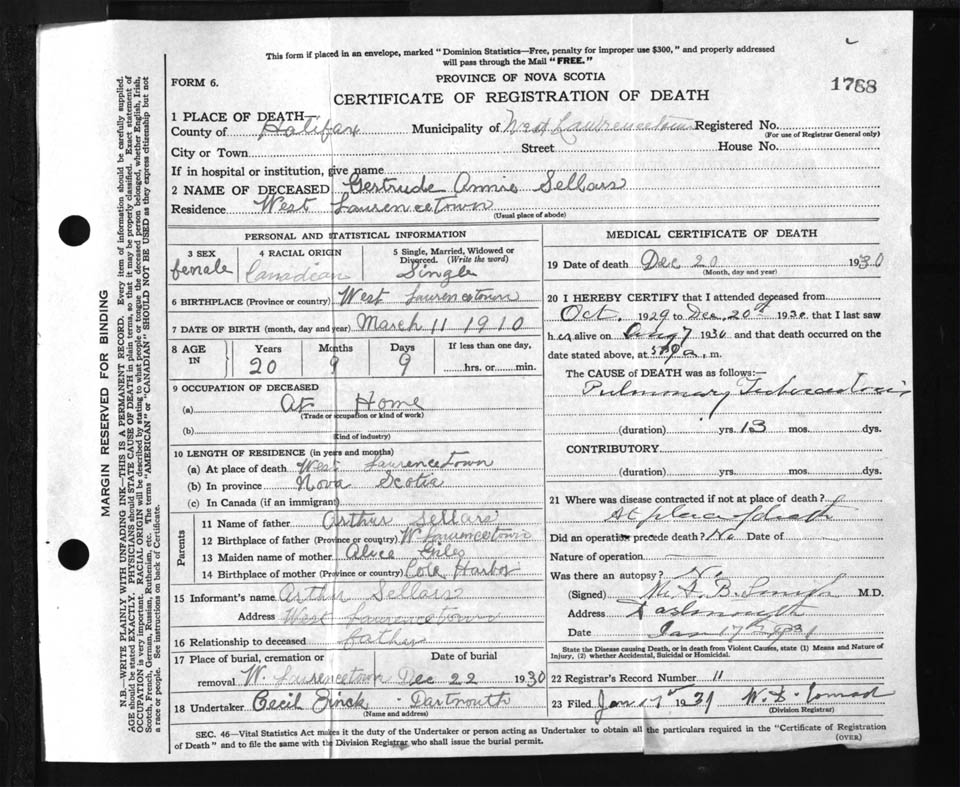 This form if placed in an envelope, marked "Dominion Statistics—Free, penalty for improper use $300," and properly addressed
will pass through the Mail "FREE."
FORM 6.
PROVINCE OF NOVA SCOTIA
1788
CERTIFICATE OF REGISTRATION OF DEATH
1 PLACE OF DEATH—
County of Halifax Municipality of West Lawrencetown Registered No.
(For use of Registrar General only)
City or Town Street House No.
If in hospital or institution, give name
2 NAME OF DECEASED Gertrude Annie Sellars
Residence West Laurencetown
(Usual place of abode)
PERSONAL AND STATISTICAL INFORMATION
3 SEX
female
4 RACIAL ORIGIN
Canadian
5 Single, Married, Widowed or
Divorced. (Write the word)
Single
6 BIRTHPLACE (Province or country) West Laurencetown
7 DATE OF BIRTH (month, day and year) March 11 1910
8 AGE
IN
Years
20
Months
9
Days
9
If less than one day,
hrs. or min.
9 OCCUPATION OF DECEASED
(a) At Home
(Trade or occupation or kind of work)
(b)
(Kind of industry)
10 LENGTH OF RESIDENCE (in years and months)
(a) At place of death West Laurencetown
(b) In province Nova Scotia
(c) In Canada (if an immigrant)
Parents
11 Name of father Arthur Sellars
12 Birthplace of father (Province or country) W Laurencetown
13 Maiden name of mother Alice Giles
14 Birthplace of mother (Province or country) Cole Harbor
15 Informant's name Arthur Sellars
Address West Laurencetown
16 Relationship to deceased father
17 Place of burial, cremation or
Date of burial
removal W. Laurencetown Dec 22 1930
18 Undertaker Cecil Zinck - Dartmouth
(Name and address)
MEDICAL CERTIFICATE OF DEATH
19 Date of death Dec 20 1930
(Month, day and year)
20 I HEREBY CERTIFY that I attended deceased from
Oct. 1929 to Dec. 20th 1930 that I last saw
h er alive on Aug 7 1930 and that death occurred on the
date stated above, at m.
The CAUSE of DEATH was as follows:—
Pulmonary Tuberculosis
(duration) yrs. 13 mos. dys.
CONTRIBUTORY
(duration) yrs. mos. dys.
21 Where was disease contracted if not at place of death?
At place of death
Did an operation precede death? No Date of
Nature of operation
Was there an autopsy? No
(Signed) B. Smith M.D.
Address Dartmouth
Date Jan 17th 1931
State the Disease causing Death, or in death from Violent Causes, state (1) Means and Nature of
Injury, (2) whether Accidental, Suicidal or Homicidal.
22 Registrar's Record Number 11
23 Filed Jan 17 1931 Conrad
(Division Registrar)
SEC. 46—Vital Statistics Act makes it the duty of the Undertaker or person acting as Undertaker to obtain all the particulars required in the "Certificate of Registration
of Death" and to file the same with the Division Registrar who shall issue the burial permit.
(OVER)
MARGIN RESERVED FOR BINDING
N.B.—WRITE PLAINLY WITH UNFADING INK—THIS IS A PERMANENT RECORD. Every item of information should be carefully supplied.
AGE should be stated EXACTLY. PHYSICIANS should STATE CAUSE OF DEATH in plain terms, so that it may be properly classified. Exact statement of
OCCUPATION is very important. RACIAL ORIGIN will be described by stating to what people or tongue the deceased person belonged, whether English, Irish,
Scotch, French, German, Russian, Ruthenian, etc. The terms "AMERICAN" or "CANADIAN" SHOULD NOT BE USED as they express citizenship but not
a race or people. See instructions on back of Certificate.